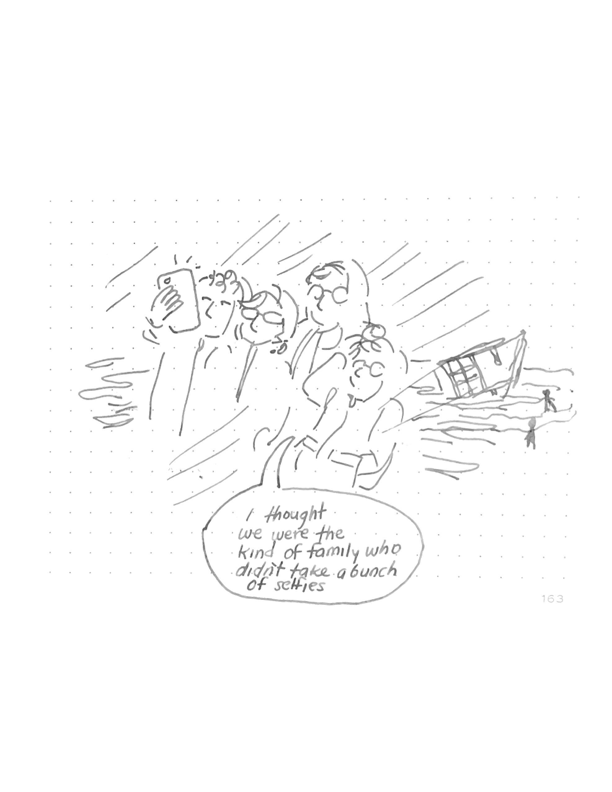 I thought
we were the
kind of family who
didn't take a bunch
of selfies
163